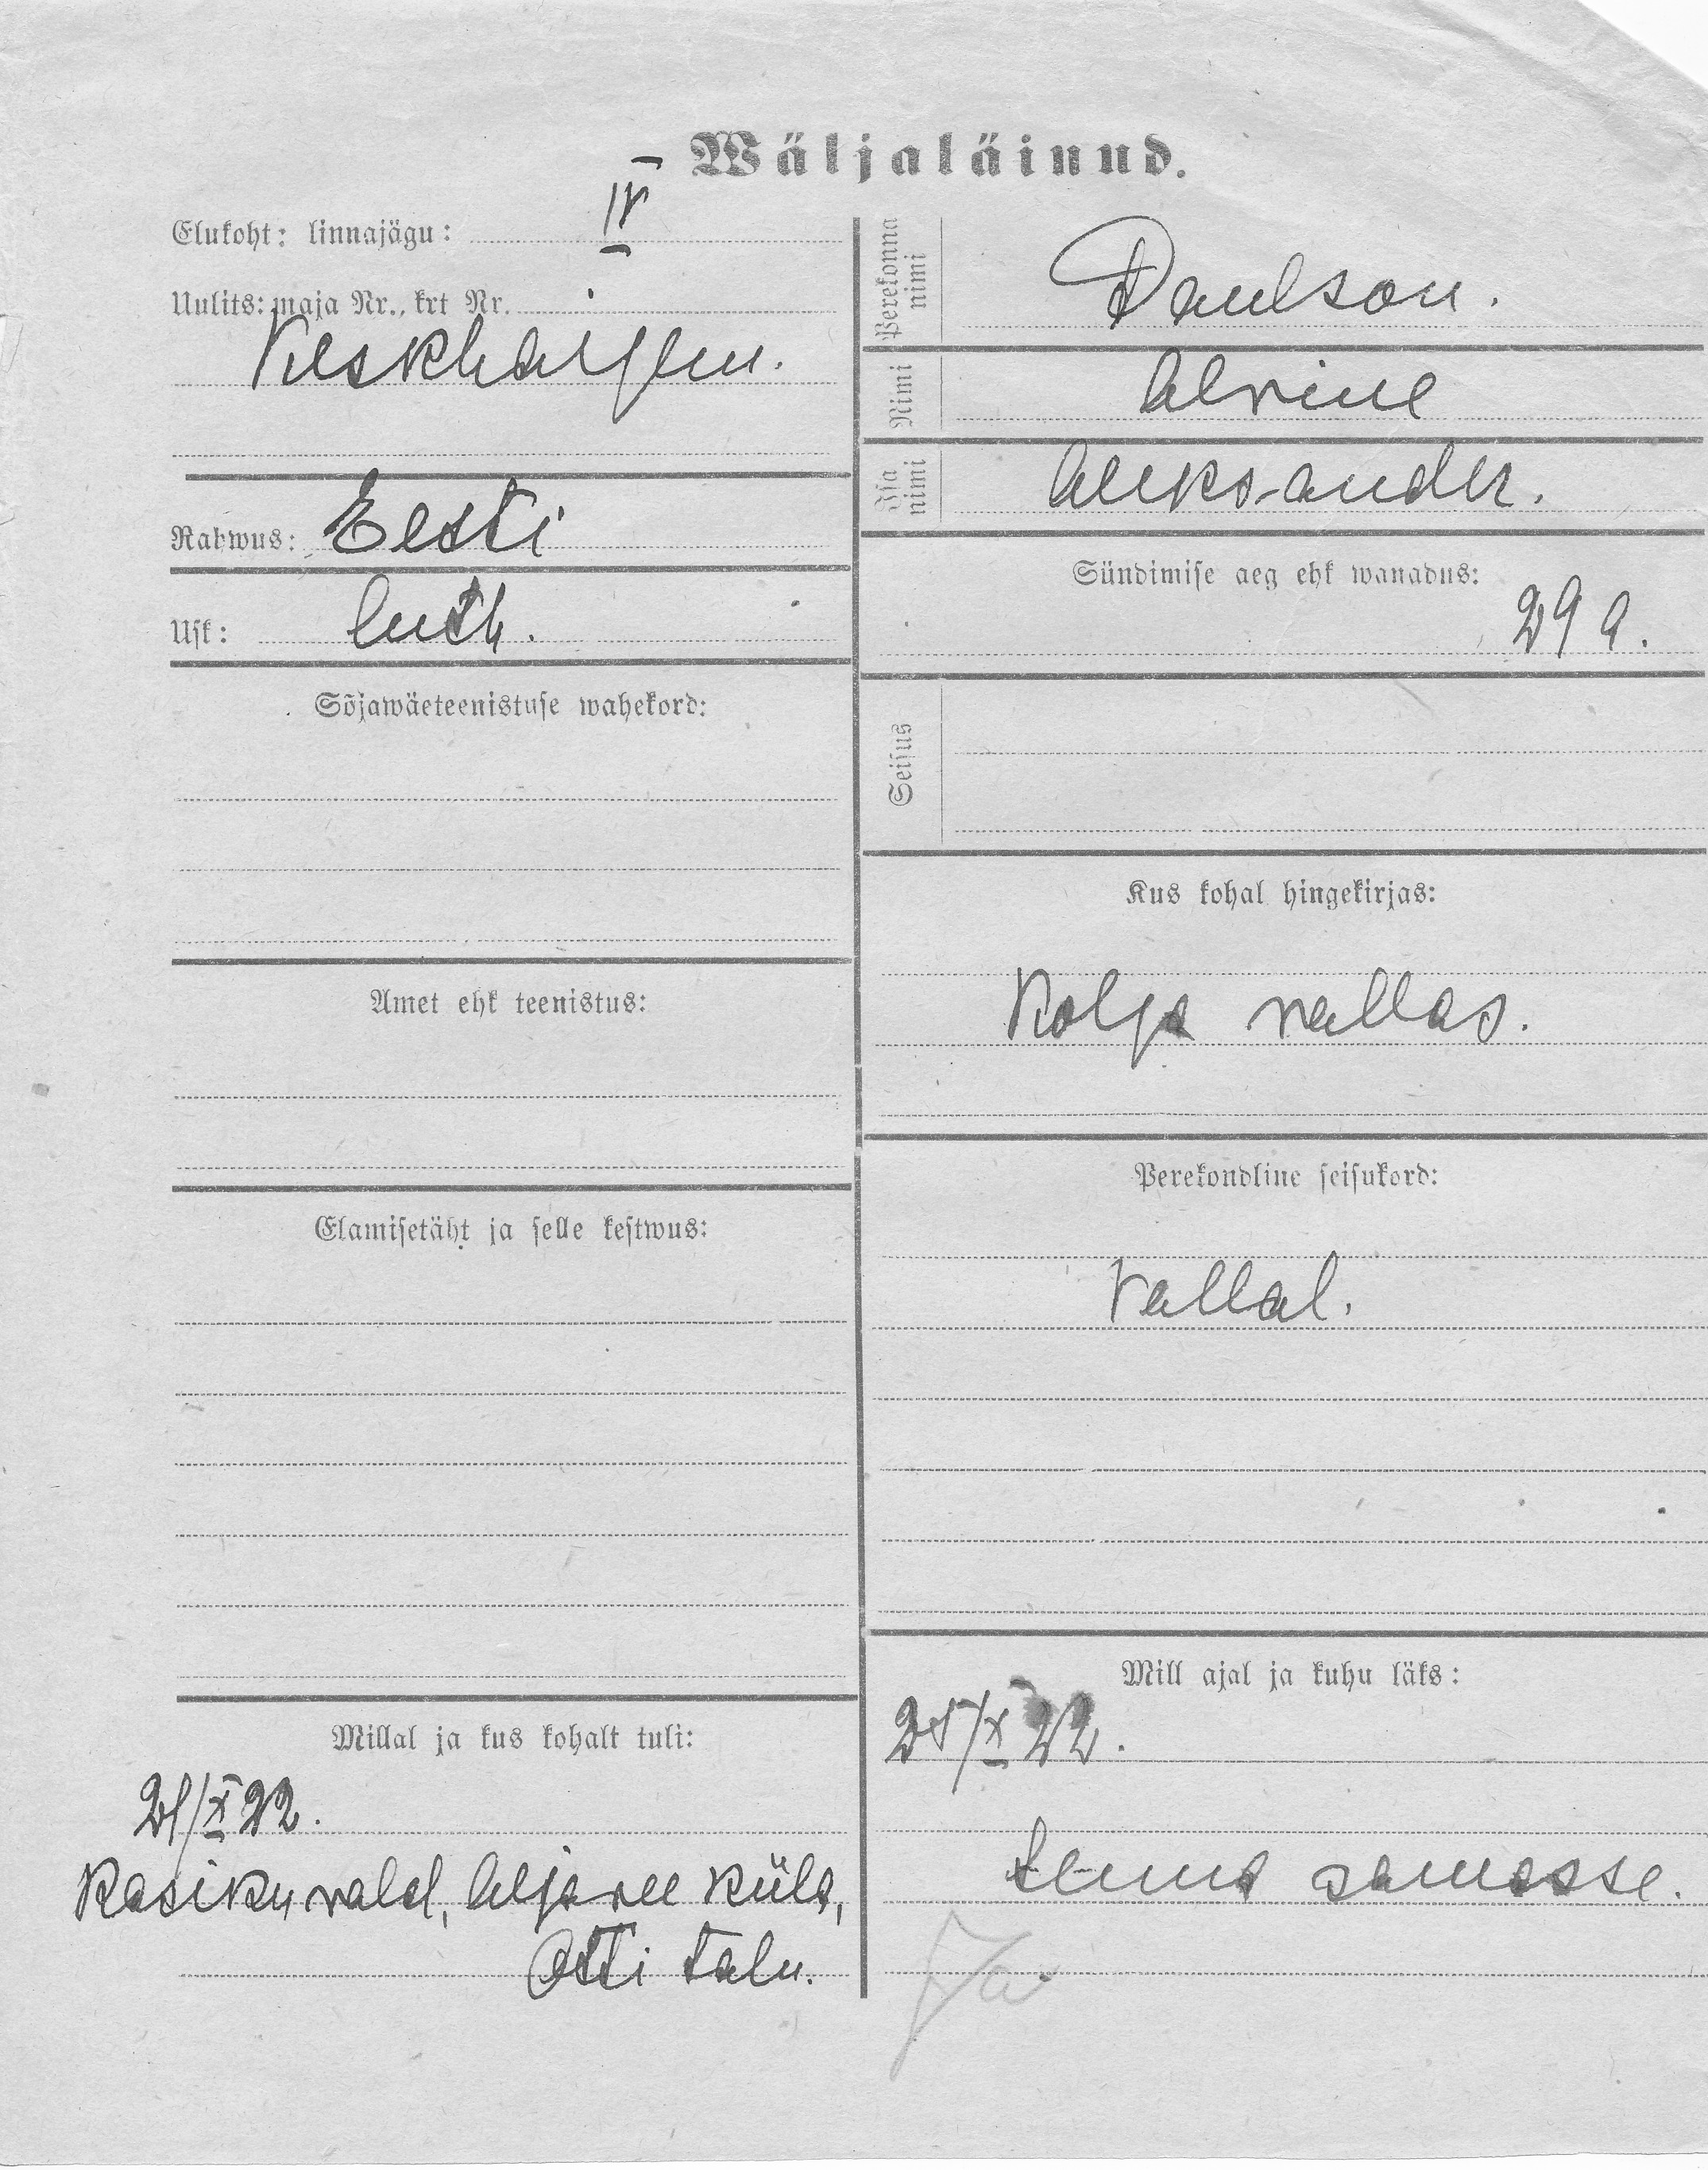 Wäljaläinud.
Elukoht: linnajägu: IV
Uulits: maja Nr., krt Nr.
Keskhaigem.
Rahwus: Eesti
Usk: luth.
Sõjawäeteenistuse wahekord:
Amet ehk teenistus:
Elamisetäht ja selle kestwus:
Millal ja kus kohalt tuli:
21/X 22.
Rasiku vald, Aljaree küla,
Otti talu.
Perekonna nimi
Paulson.
Nimi
Alvine
Isa nimi
Aleksander.
Sündimise aeg ehk wanadus:
29 a.
Seisus
Kus kohal hingekirjas:
Kolga vallas.
Perekondline seisukord:
Vallal.
Mill ajal ja kuhu läks:
25/X 22.
samasse.
Ja